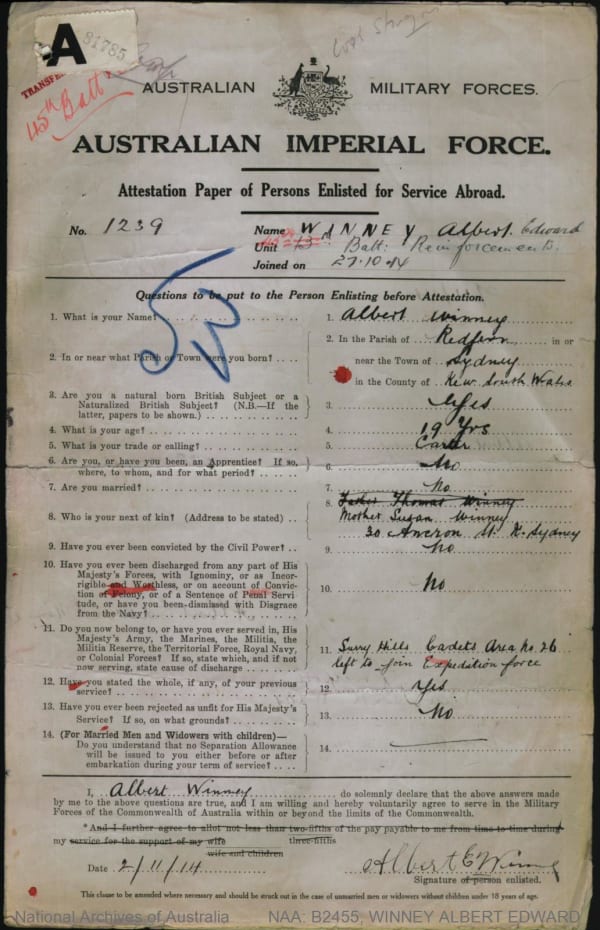 A 81785
TRANSFE
45th Batt
AUSTRALIAN MILITARY FORCES.
AUSTRALIAN IMPERIAL FORCE.
Attestation Paper of Persons Enlisted for Service Abroad.
No. 1239 Name WINNEY Albert Edward
Unit 13th Batt: Reinforcements.
Joined on 27.10.14
Questions to be put to the Person Enlisting before Attestation.
1. What is your Name? 1. Albert Winney
2. In or near what Parish or Town were you born? 2. In the Parish of Redfern in or
near the Town of Sydney
in the County of New South Wales
3. Are you a natural born British Subject or a
Naturalized British Subject? (N.B.—If the
latter, papers to be shown.) 3. Yes
4. What is your age? 4. 19 Yrs
5. What is your trade or calling? 5. Carter
6. Are you, or have you been, an Apprentice? If so,
where, to whom, and for what period? 6. No
7. Are you married? 7. No
8. Who is your next of kin? (Address to be stated) 8. Father Thomas Winney
Mother Susan Winney
30 St. N. Sydney
9. Have you ever been convicted by the Civil Power? 9. No
10. Have you ever been discharged from any part of His
Majesty's Forces, with Ignominy, or as Incor-
rigible and Worthless, or on account of Convic-
tion of Felony, or of a Sentence of Penal Servi
tude, or have you been dismissed with Disgrace
from the Navy? 10. No
11. Do you now belong to, or have you ever served in, His
Majesty's Army, the Marines, the Militia, the
Militia Reserve, the Territorial Force, Royal Navy,
or Colonial Forces? If so, state which, and if not
now serving, state cause of discharge 11. Surry Hills Cadets Area No. 26
left to join Expedition force
12. Have you stated the whole, if any, of your previous
service? 12. Yes
13. Have you ever been rejected as unfit for His Majesty's
Service? If so, on what grounds? 13. No
14. (For Married Men and Widowers with children)—
Do you understand that no Separation Allowance
will be issued to you either before or after
embarkation during your term of service? 14.
I, Albert Winney do solemnly declare that the above answers made
by me to the above questions are true, and I am willing and hereby voluntarily agree to serve in the Military
Forces of the Commonwealth of Australia within or beyond the limits of the Commonwealth.
*And I further agree to allot not less than two-fifths of the pay payable to me from time to time during
three-fifths
my service for the support of my wife
wife and children
Date 2/11/14 Albert E Winney
Signature of person enlisted.
This clause to be amended where necessary and should be struck out in the case of unmarried men or widowers without children under 18 years of age.
National Archives of Australia NAA: B2455, WINNEY ALBERT EDWARD